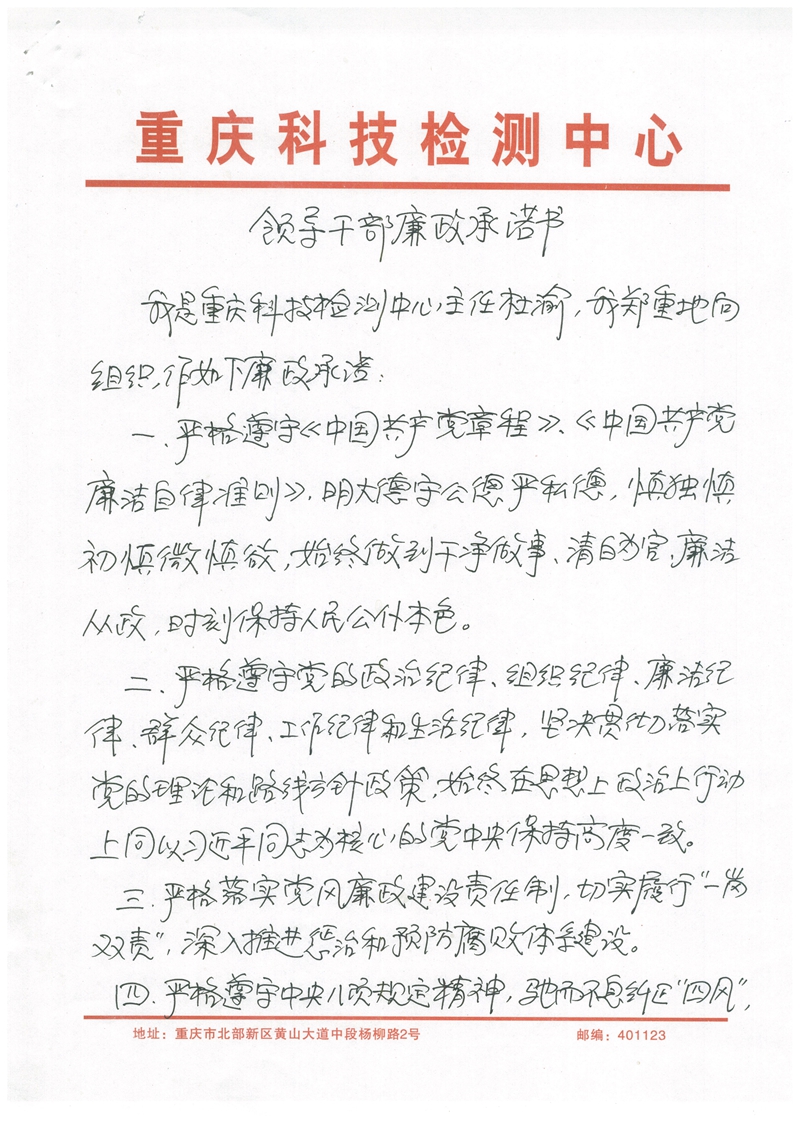 重庆科技检测中心
领导干部廉政承诺书
我是重庆科技检测中心主任杜渝，我郑重地向
组织作如下廉政承诺：
一、严格遵守《中国共产党章程》、《中国共产党
廉洁自律准则》，明大德守公德严私德，慎独慎
初慎微慎欲，始终做到干净做事、清白为官、廉洁
从政，时刻保持人民公仆本色。
二、严格遵守党的政治纪律、组织纪律、廉洁纪
律、群众纪律、工作纪律和生活纪律，坚决贯彻落实
党的理论和路线方针政策，始终在思想上政治上行动
上同以习近平同志为核心的党中央保持高度一致。
三、严格落实党风廉政建设责任制，切实履行“一岗
双责”，深入推进惩治和预防腐败体系建设。
四、严格遵守中央八项规定精神，驰而不息纠正“四风”，
地址：重庆市北部新区黄山大道中段杨柳路2号 邮编：401123